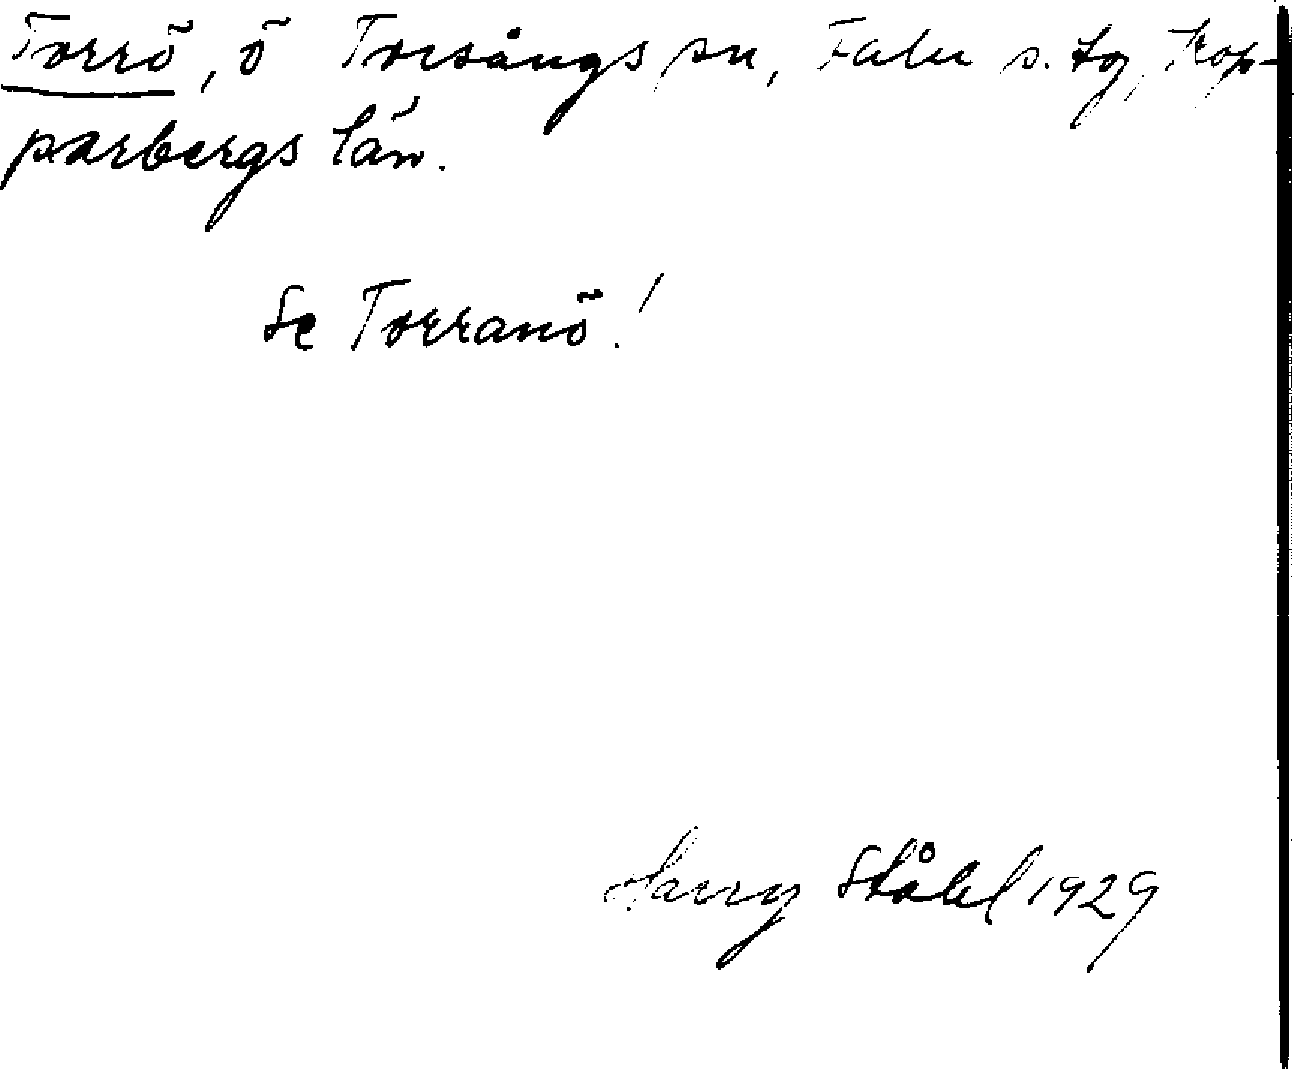 Torrö, ö Torsångs sn, Falu s. tg, Kop-
parbergs län.
Se Torranö!
Harry Ståhl 1929